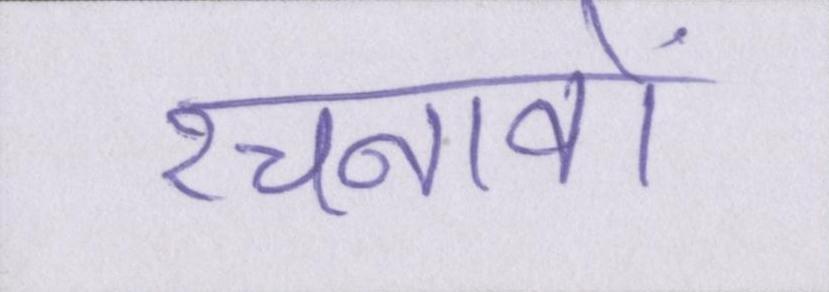 रचनावों